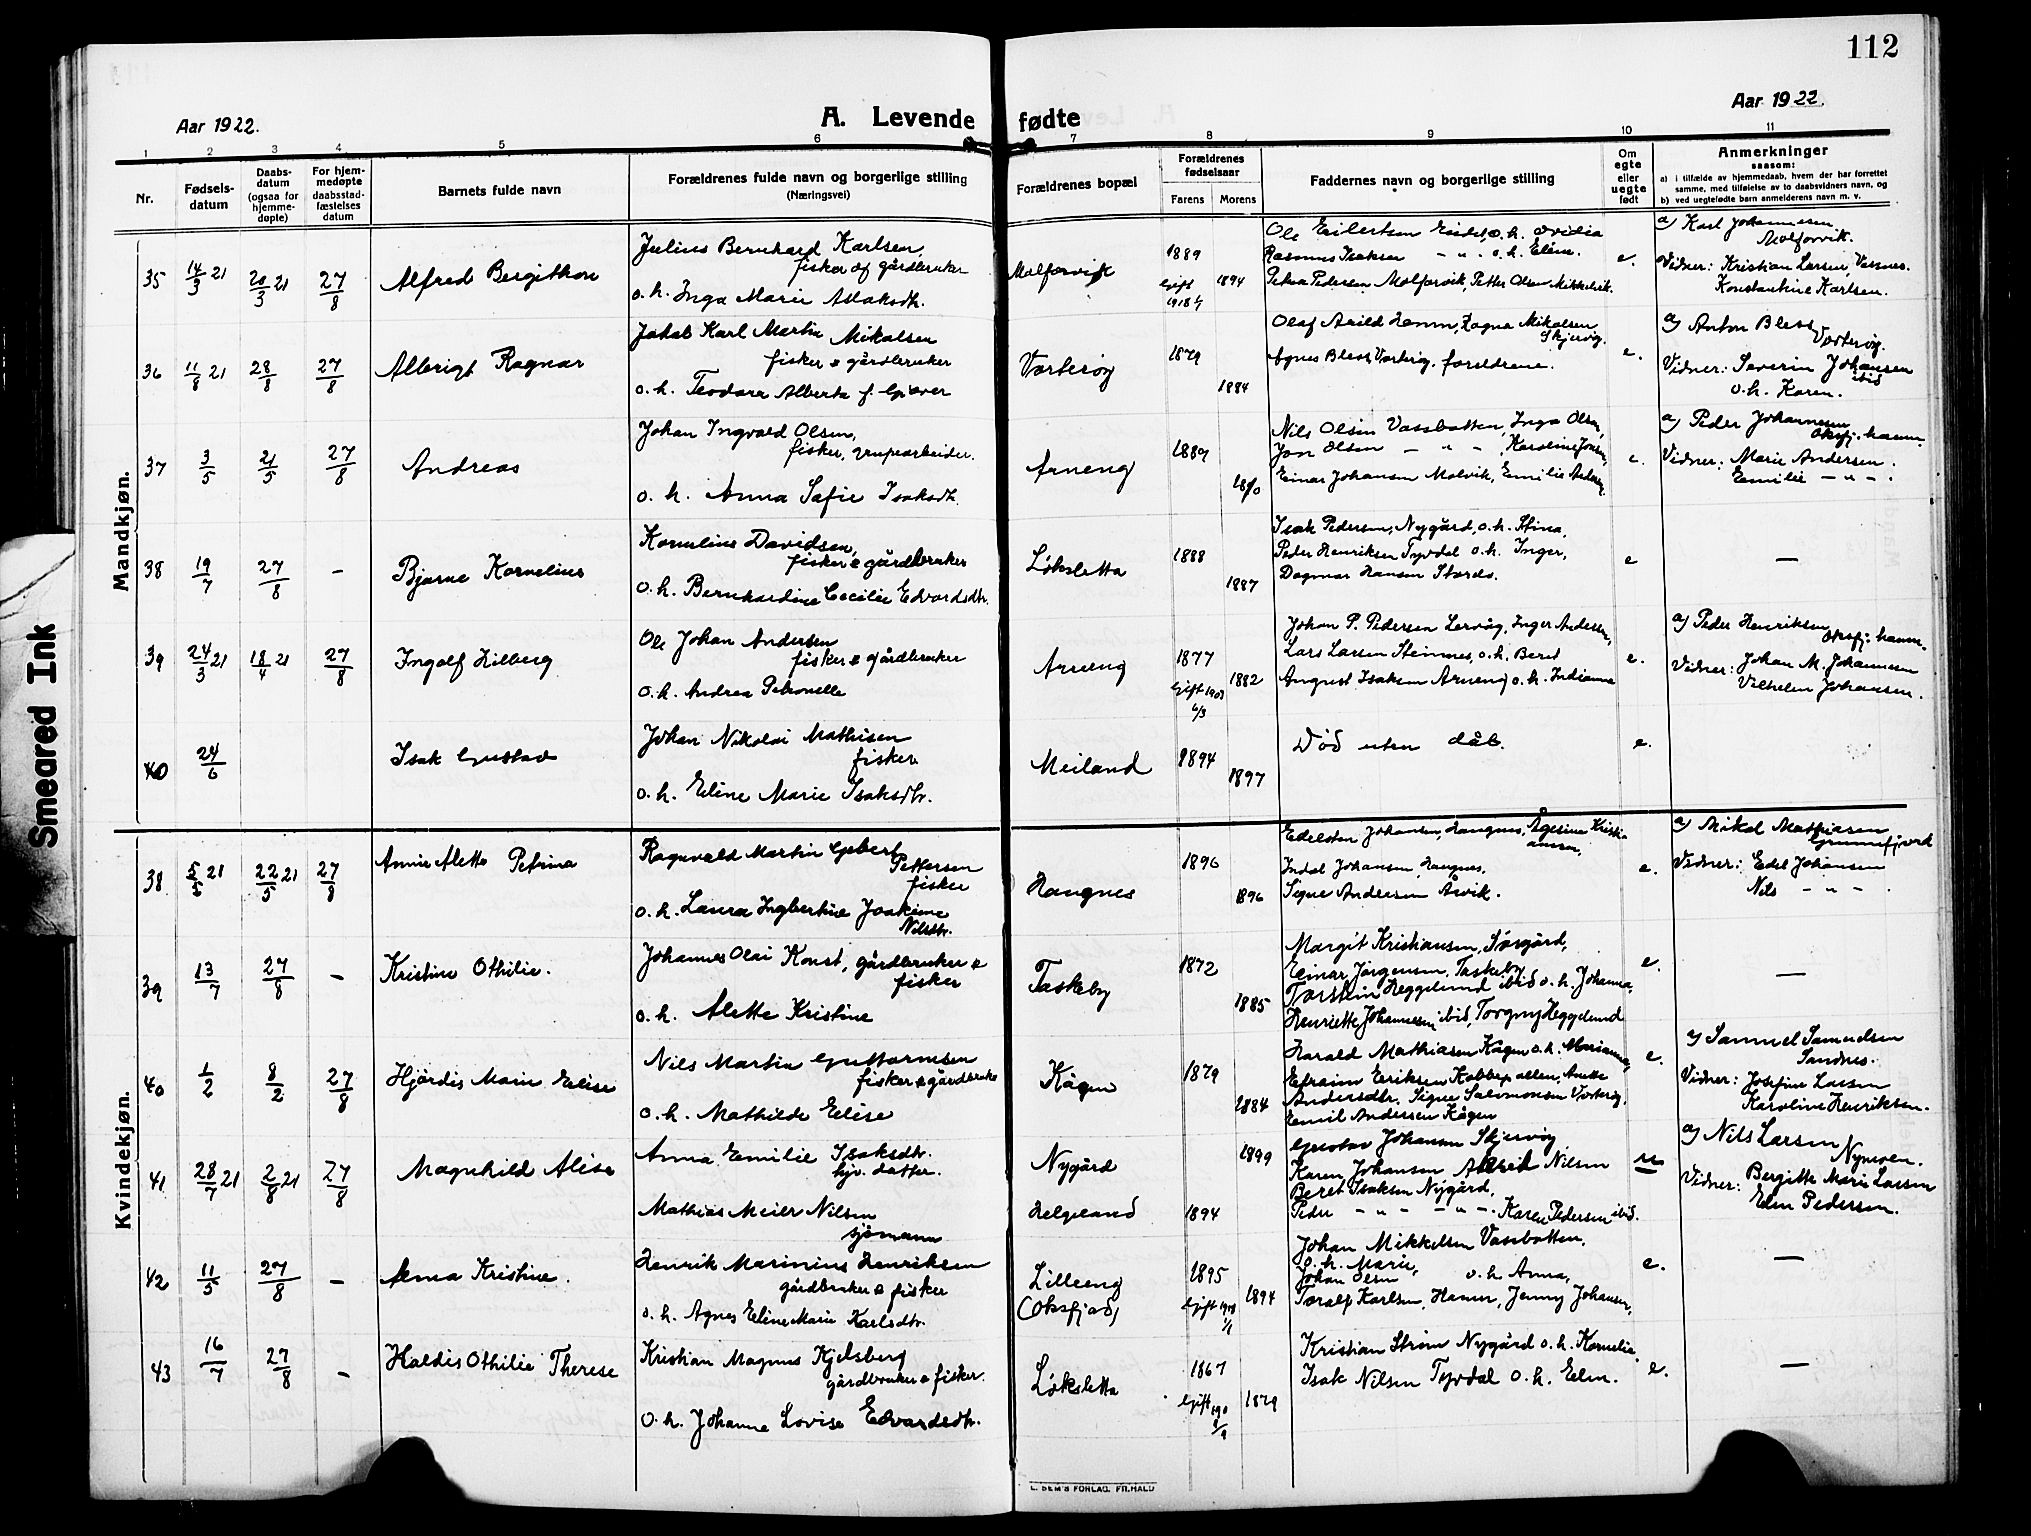 112
Aar 1922.
A. Levende fødte
Aar 1922.
1 2 3 4 5 6 7 8 9 10 11
Nr.
Fødsels-
datum
Daabs-
datum
(ogsaa for
hjemme-
døpte)
For hjem-
medøpte
daabsstad-
fæstelses
datum
Barnets fulde navn
Forældrenes fulde navn og borgerlige stilling
(Næringsvei)
Forældrenes bopæl
Forældrenes
fødselsaar
Farens Morens
Faddernes navn og borgerlige stilling
Om
egte
eller
uegte
født
Anmerkninger
saasom:
a) i tilfælde av hjemmedaab, hvem der har forrettet
samme, med tilføielse av to daabsvidners navn, og
b) ved uegtefødte barn anmelderens navn m. v.
Mandkjøn.
35 14/3 21 20/3 21 27/8 Alfred Bergithon
Julius Bernhard Karlsen,
fisker og gårdbruker
o.h. Inga Marie Aslaksdtr.
1889
Gift 1894
Ole Eilertsen o.h. Ovidia
Rasmus Isaksen - " - o.h. Eline.
Petra Pedersen, Petter Olsen
e.
a) Karl Johannesen
Vidner: Kristian Larsen,
Konstantine Karlsen.
36 11/8 21 28/8 27/8 Albrigt Ragnar
Jakob Karl Martin Mikalsen
fisker & gårdbruker
o.h. Teodora Alberta f. Giæver
Vorterøy
1879
1884
Olaf Arild Hamn, Magna Mikalsen
Skjervøy.
Agnes Bless Vorterøy. foreldrene.
e.
a) Anton Bless
Vorterøy.
Vidner: Severin Johansen
ibid
o.h. Karen.
37 3/5 21/5 27/8 Andreas
Johan Ingvald Olsen,
fisker, grubearbeider.
o.h. Anna Safie Isaksdtr.
Arneng
1889
Nils Olsen Vassbotten, Inga Olsen,
Jon Olsen - " - , Karoline Jonsen,
Einar Johansen Molvik, Emilie Andersen.
e.
a) Peder Johannesen
Oksfj. hamn.
Vidner: Marie Andersen.
Emilie - " - .
38 19/7 27/8 - Bjarne Kornelius
Kornelius Davidsen,
fisker & gårdbruker
o.h. Bernhardine Cecilie Edvardsdtr.
Løksletta
1888
1887
Isak Pedersen, Nygård, o.h. Stina,
Peder Henriksen Tyvdal o.h. Inger,
Dagmar Hansen Stords.
e
-
39 24/3 21 18/4 21 27/8 Ingolf Hilberg
Ole Johan Andersen
fisker & gårdbruker
o.h. Andrea Petronelle
Arneng
1877
Gift 1903
6/3
1882
Johan P. Pedersen Lervåg, Inger Andersen,
Lars Larsen Steinnes, o.h. Beret
August Isaksen Arneng o.h. Indianna
e.
a) Peder Henriksen
Oksfj. hamn.
Vidner: Johan M. Johannesen
Vilhelm Johansen.
40 24/6 Isak Gustav
Johan Nikolai Mathisen
fisker
o.h. Eline Marie Isaksdtr.
Meiland
1894
1897
Død uten dåb.
e.
Kvindekjøn.
38 5/5 21 22/5 21 27/8 Annie Aletta Petrina
Ragnvald Martin Gebert
Pettersen
fisker
o.h. Laura Ingbertine Joakime
Nilsdtr.
Haugnes
1896
1896
Edelsten Johansen, Haugnes, Ågesine Kristiansen,
Indal Johansen, Haugnes.
Signe Andersen Årvik.
e.
a) Mikal Mathiasen
Grunnfjord
Vidner: Edel Johansen
Nils - " - .
39 13/7 27/8 - Kristine Othilie.
Johannes Olai Konst, gårdbruker &
fisker
o.h. Alette Kristine
Taskeby
1872
1885
Margit Kristiansen, Sørgård,
Einar Jørgensen, Taskeby
Torstein Heggelund ibid o.h. Johanna,
Henriette Johannesen ibid, Torgny Heggelund
e.
-
40 1/2 8/2 27/8 Hjørdis Marie Elise
Nils Martin Guttormsen
fisker & gårdbruker
o.h. Mathilde Elise
Kågen
1879
1884
Harald Mathiasen Kågen o.h. Marianna,
Efraim Eriksen Kobbepollen, Anette
Andersdtr. Signe Salomonsen Vorterøy,
Emil Andersen Kågen
e.
a) Samuel Samuelsen
Sandnes.
Vidner: Josefine Larsen
Karoline Henriksen.
41 28/7 21 2/8 21 27/8 Magnhild Alise
Anna Emilie Isaksdtr.
hjv. datter.
Mathias Meier Nilsen
sjømann
Nygård
Helgeland
1899
1894
Gustav Johansen Skjervøy
Karen Johansen Nilsen
Beret Isaksen Nygård,
Peder - " - - " - . Karen Pedersen ibid.
u
a) Nils Larsen
Nymoen.
Vidner: Bergitte Marie Larsen
Elen Pedersen.
42 11/5 27/8 - Anna Kristine.
Henrik Marinius Henriksen
gårdbruker & fisker
o.h. Agnes Eline Marie Karlsdtr.
Lilleeng
(Oksfjord)
1895
1894
Johan Mikkelsen Vassbotten,
o.h. Marie,
Johan Olsen o.h. Anna,
Toralf Karlsen, Hamn, Jenny Johansen,
e.
-
43 16/7 27/8 - Haldis Othilie Therese
Kristian Magnus Kjelsberg
gårdbruker & fisker.
o.h. Johanna Lovise Edvardsdtr.
Løksletta
1867
1879
Kristian Strøm Nygård o.h. Kornelia,
Isak Nilsen Tyvdal o.h. Elen.
e.
-
L. SEM'S FORLAG, FR.HALD
Smeared Ink